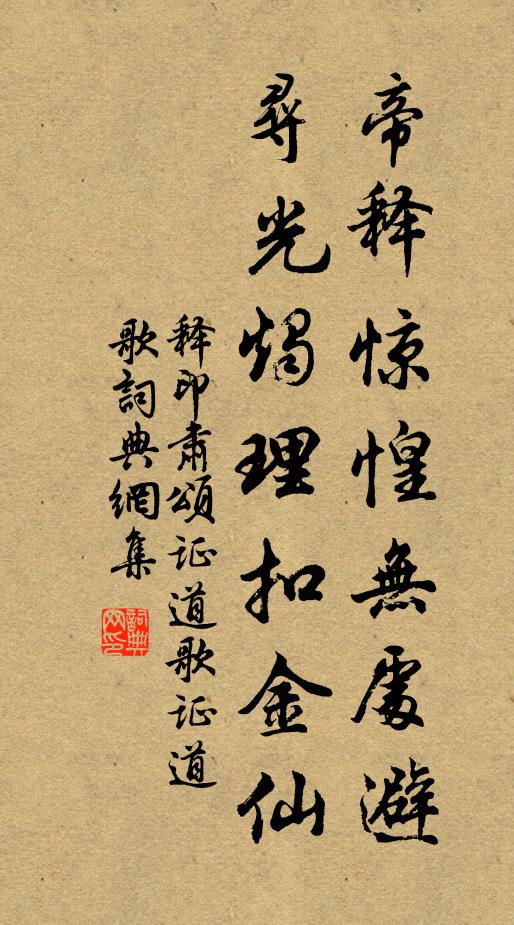 帝释惊惶無處避
尋光燭理扣金仙
释印肅頌证道歌证道
歌詞典網集
詞典网印